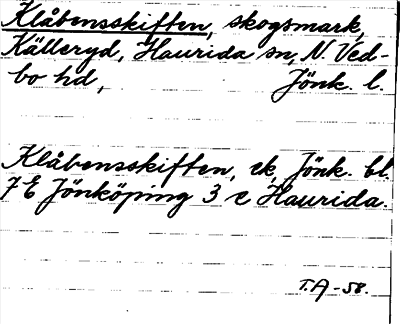 Klåbensskiften, skogsmark,
Källeryd, Haurida sn, N. Ved-
bo hd, Jönk. l.
Klåbensskiften, ek, Jönk. bl.
7 E Jönköping 3 e Haurida.
T.A -58.